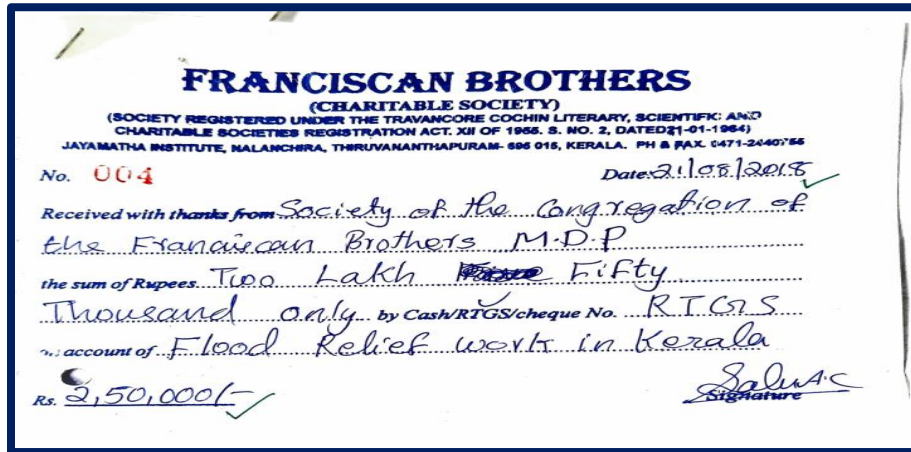 FRANCISCAN BROTHERS
(CHARITABLE SOCIETY)
(SOCIETY REGISTERED UNDER THE TRAVANCORE COCHIN LITERARY, SCIENTIFIC AND
CHARITABLE SOCIETIES REGISTRATION ACT. XII OF 1955. S. NO. 2, DATED21-01-1964)
JAYAMATHA INSTITUTE, NALANCHIRA, THIRUVANANTHAPURAM- 695 015, KERALA. PH & FAX. 0471-2440755
No. 004 Date: 21/08/2018
Received with thanks from Society of the Congregation of
the Franciscan Brothers M.D.P
the sum of Rupees Two Lakh Fifty
Thousand only by Cash/RTGS/cheque No. RTGS
account of Flood Relief work in Kerala
Rs. 2,50,000/-
Signature